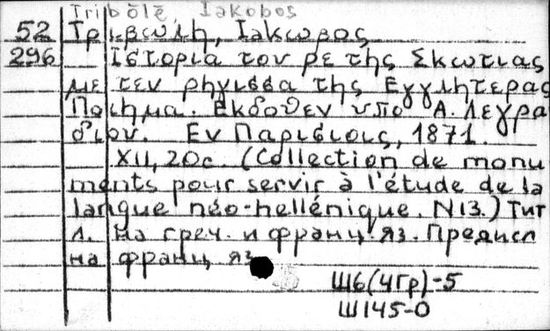 Tribōlē Iakobos
52 Τριβωλη, Ιακωβος
296 Ιστορια του ρε της Σκωτιας
με τεν ρηγισσα της Εγγλητερας
Ποιημα. Εκδοθεν υπο Α. Λεγρα
διου. Εν Παρισιοις, 1871.
XII, 20с. (Collection de monu
ments pour servir à l'étude de la
langue néo-hellénique. N13.) Тит
л. на греч. и франц. яз. Предисл
на франц яз
Ш6(4Гр)-5
Ш145-0